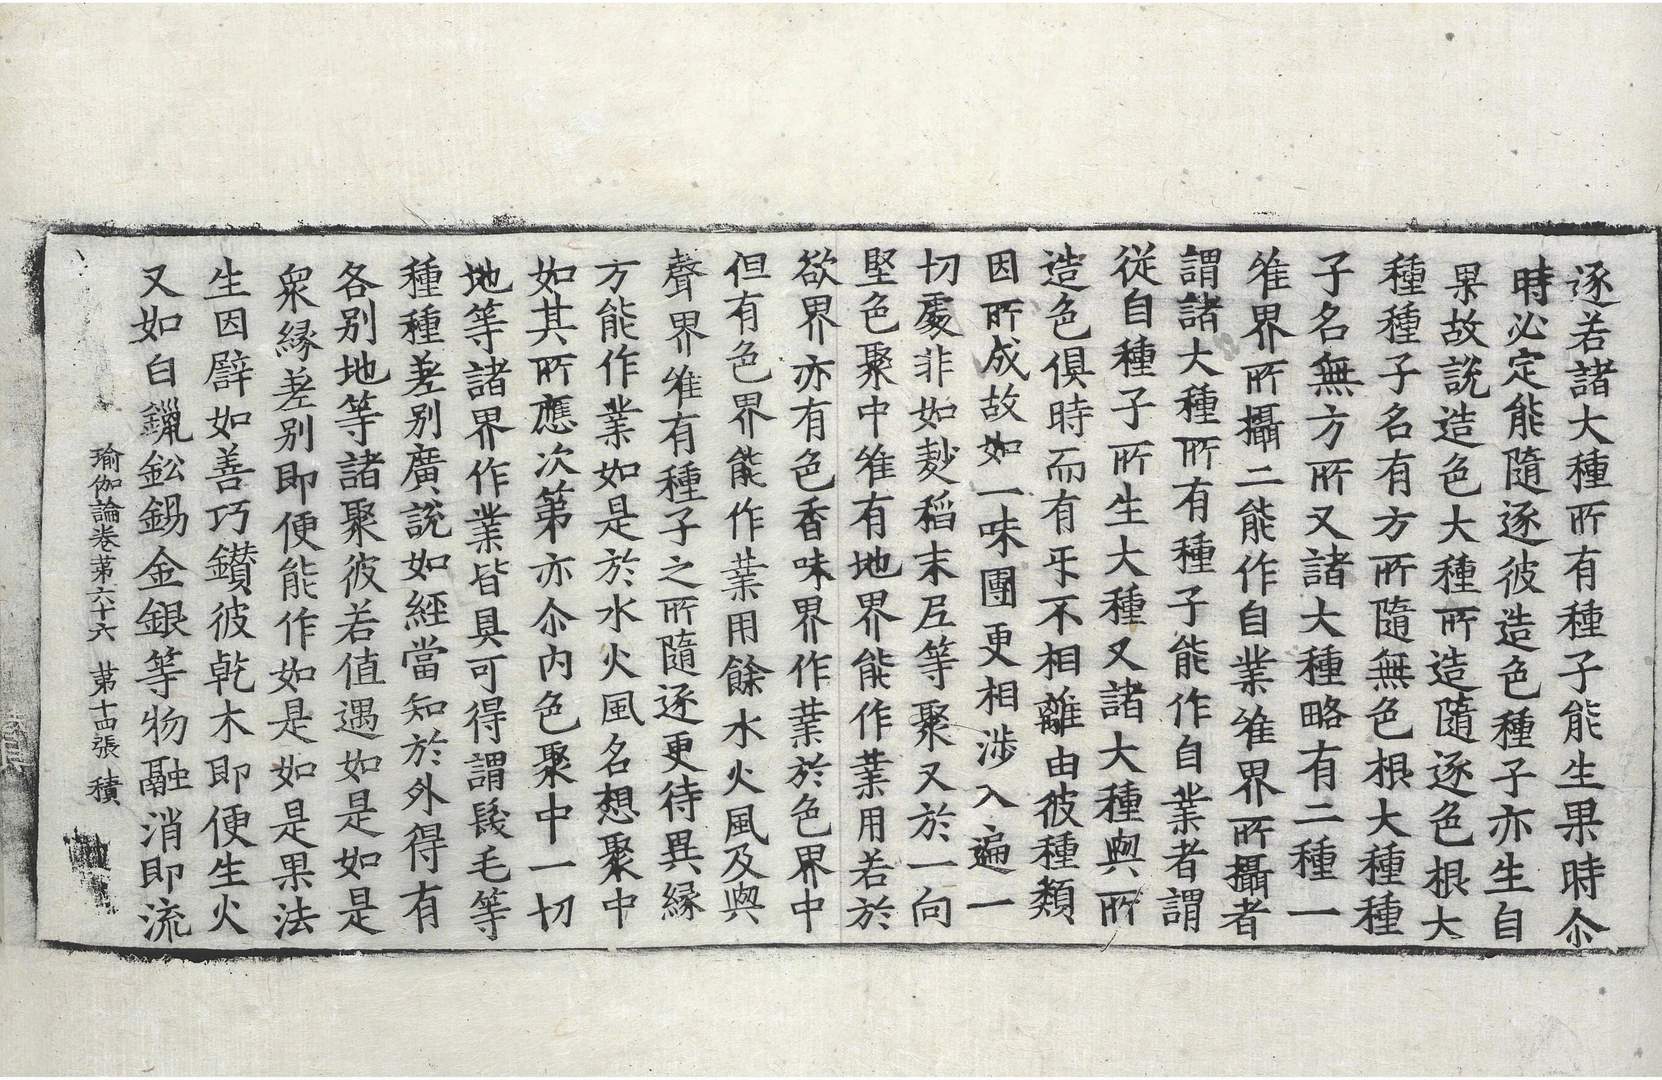 逐若諸大種所有種子能生果時尒
時必定能隨逐彼造色種子亦生自
果故說造色大種所造隨逐色根大
種種子名有方所隨無色根大種種
子名無方所又諸大種略有二種一
唯界所攝二能作自業唯界所攝者
謂諸大種所有種子能作自業者謂
從自種子所生大種又諸大種與所
造色俱時而有㸦不相離由彼種類
因所成故如一味團更相涉入遍一
切處非如麨稻末尼等聚又於一向
堅色聚中唯有地界能作業用若於
欲界亦有色香味界作業於色界中
但有色界能作業用餘水火風及與
聲界唯有種子之所隨逐更待異緣
方能作業如是於水火風名想聚中
如其所應次第亦尒內色聚中一切
地等諸界作業皆具可得謂髮毛等
種種差別廣說如經當知於外得有
各別地等諸聚彼若值遇如是如是
衆緣差別即便能作如是如是果法
生因譬如善巧鑚彼乾木即便生火
又如白鑞鈆錫金銀等物融消即流
瑜伽論卷第六十六　第十四張　積